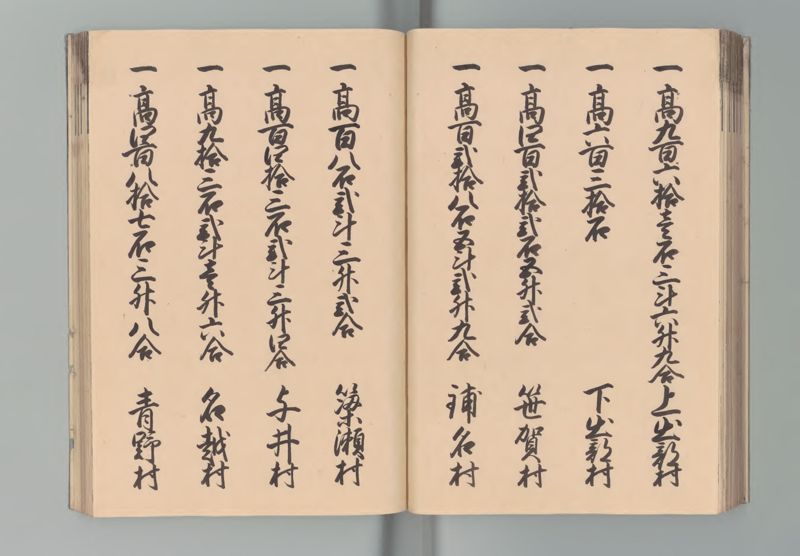 一 高九百六拾壱石三斗六升九合 上出部村
一 高六百三拾石 下出部村
一 高四百弐拾弐石五升弐合 笹賀村
一 高百弐拾八石五斗弐升九合 名村
一 高百八石弐斗三升弐合 簗瀬村
一 高百四拾三石弐斗三升四合 与井村
一 高九拾三石弐斗壱升六合 名越村
一 高四百八拾七石三升八合 青野村